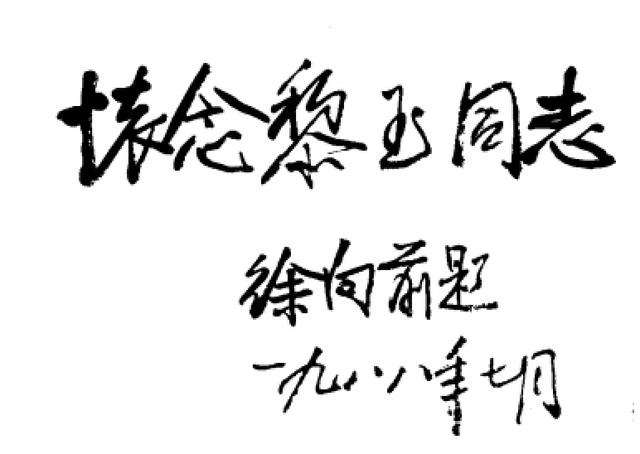 怀念黎玉同志
徐向前题
一九八八年七月